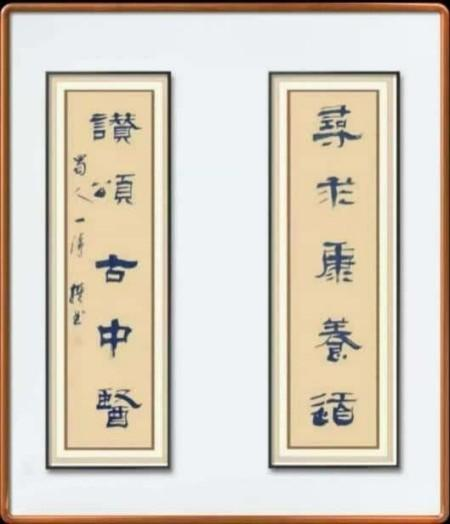 尋求康養道
讚頌古中醫
蜀人一濤撰書